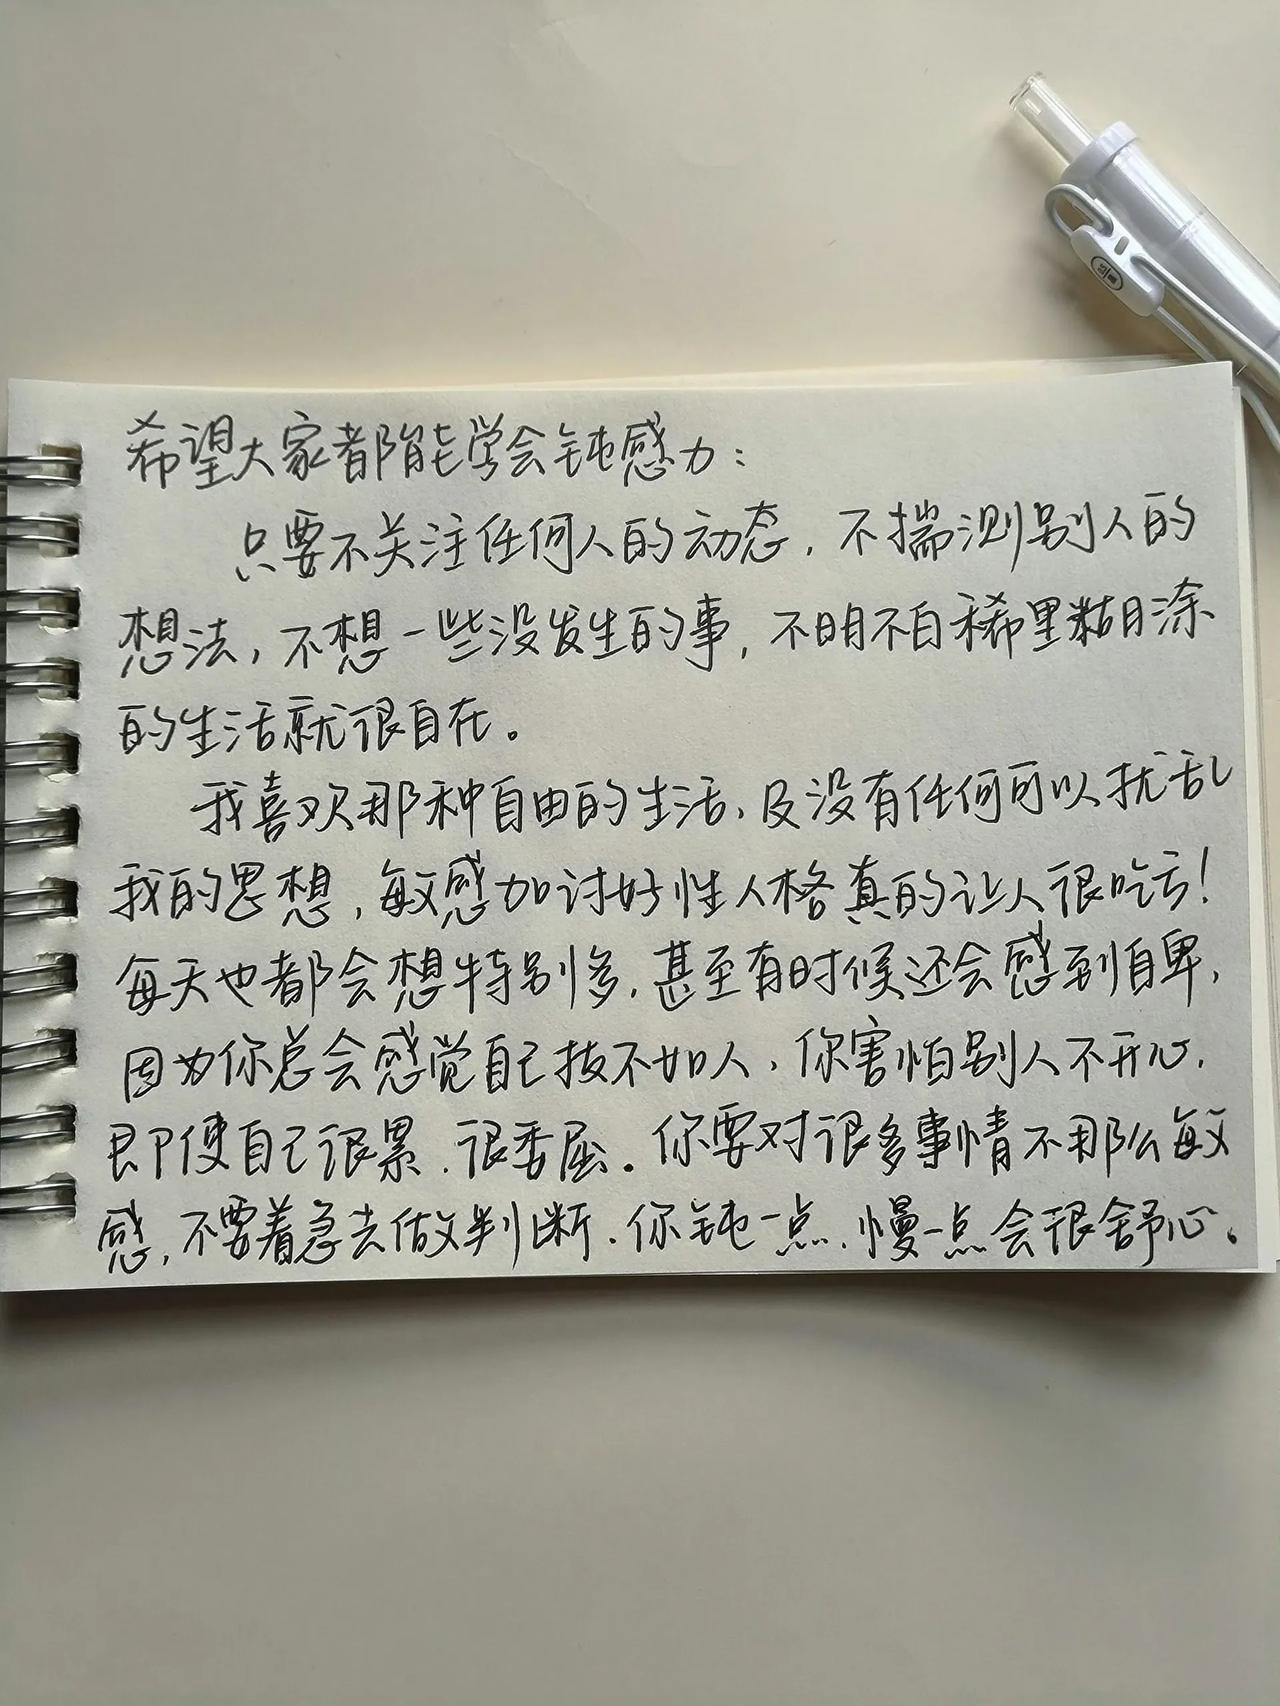 希望大家都能学会钝感力：
只要不关注任何人的动态，不揣测别人的
想法，不想一些没发生的事，不明不白稀里糊涂
的生活就很自在。
我喜欢那种自由的生活、及没有任何可以扰乱
我的思想，敏感加讨好性人格真的让人很吃亏！
每天也都会想特别多，甚至有时候还会感到自卑，
因为你总会感觉自己技不如人，你害怕别人不开心，
即使自己很累、很委屈。你要对很多事情不那么敏
感，不要着急去做判断，你钝一点、慢一点会很舒心。